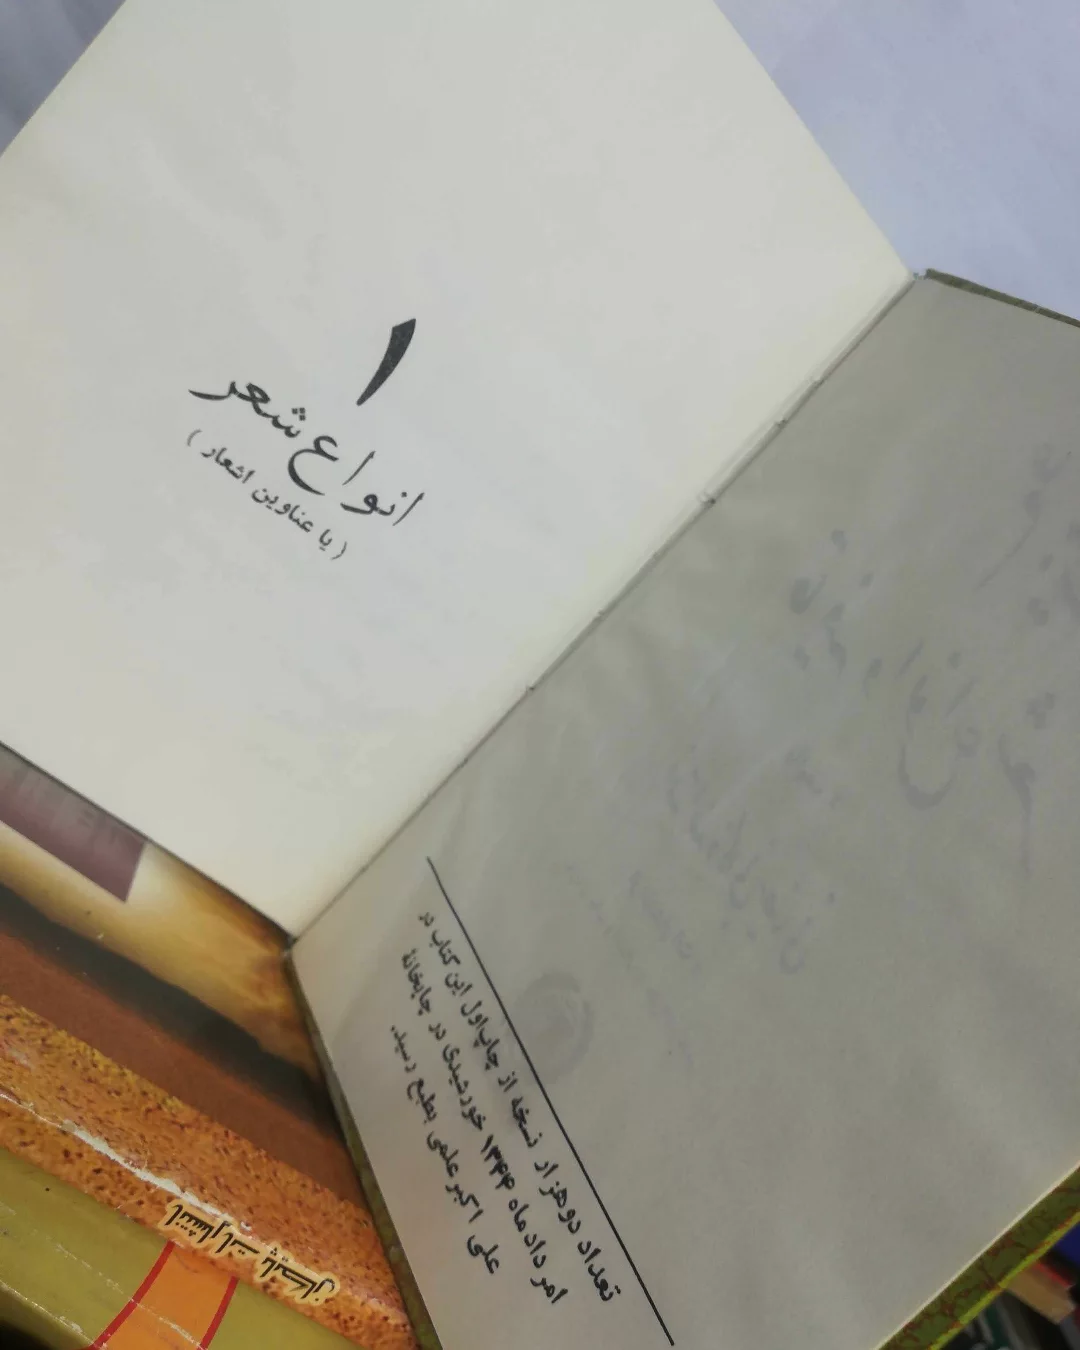 ۱
انواع شعر
( یا عناوین اشعار )
تعداد دوهزار نسخه از چاپ اول این کتاب در
امردادماه ۱۳۴۴ خورشیدی در چاپخانهٔ
علی اکبر علمی بطبع رسید.